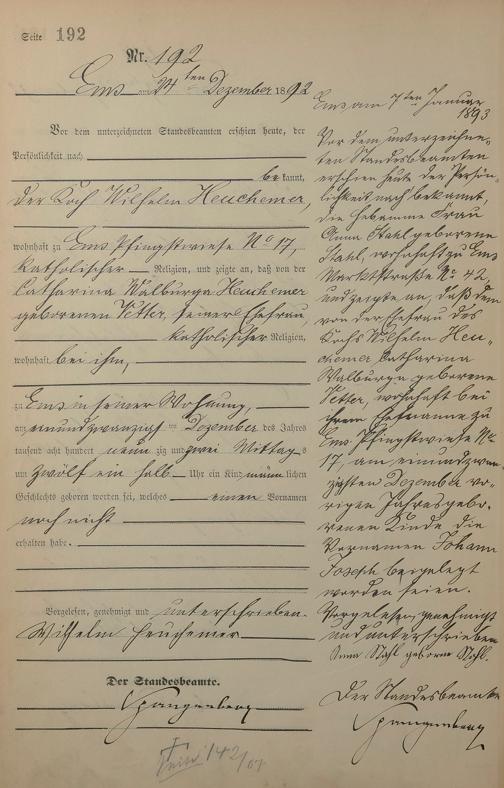 Seite 192
Nr. 192
Ems am 24ten Dezember 1892
Vor dem unterzeichneten Standesbeamten erschien heute, der
Persönlichkeit nach
be kannt,
der Koch Wilhelm Heuchemer,
wohnhaft zu Ems Pfingstwiese No 17,
katholischer Religion, und zeigte an, daß von der
Catharina Walburga Heuchemer
geborenen Vetter, seiner Ehefrau,
katholischer Religion,
wohnhaft bei ihm,
zu Ems in seiner Wohnung,
am einundzwanzigsten Dezember des Jahres
tausend acht hundert neun zig und zwei Mittags
um zwölf ein halb Uhr ein Kind männ lichen
Geschlechts geboren worden sei, welches einen Vornamen
noch nicht
erhalten habe.
Vorgelesen, genehmigt und unterschrieben.
Wilhelm Heuchemer
Der Standesbeamte.
Spangenberg
142/
Ems, am 7ten Januar
1893
Vor dem unterzeichne-
ten Standesbeamten
erschien heute der Persön-
lichkeit nach bekannt,
die Hebamme Frau
Anna Stahl geborene
Stahl, wohnhaft zu Ems
Marktstraße No. 42,
und zeigte an, daß dem
von der Ehefrau des
Kochs Wilhelm Heu-
chemer Catharina
Walburga geborene
Vetter, wohnhaft bei
ihrem Ehemanne zu
Ems Pfingstwiese No
17, am einundzwan-
zigsten Dezember vo-
rigen Jahres gebo-
renen Kinde die
Vornamen Johann
Joseph beigelegt
worden seien.
Vorgelesen, genehmigt
und unterschrieben
Anna Stahl geborne Stahl.
Der Standesbeamte
Spangenberg